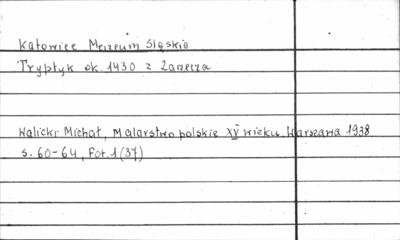 Katowice Mezeum Śląskie
Tryptyk ok. 1430 z Zarzecza
Walicki Michał, Malarstwo polskie XV wieku, Warszawa 1938
s. 60-64, Fot. 1 (37)